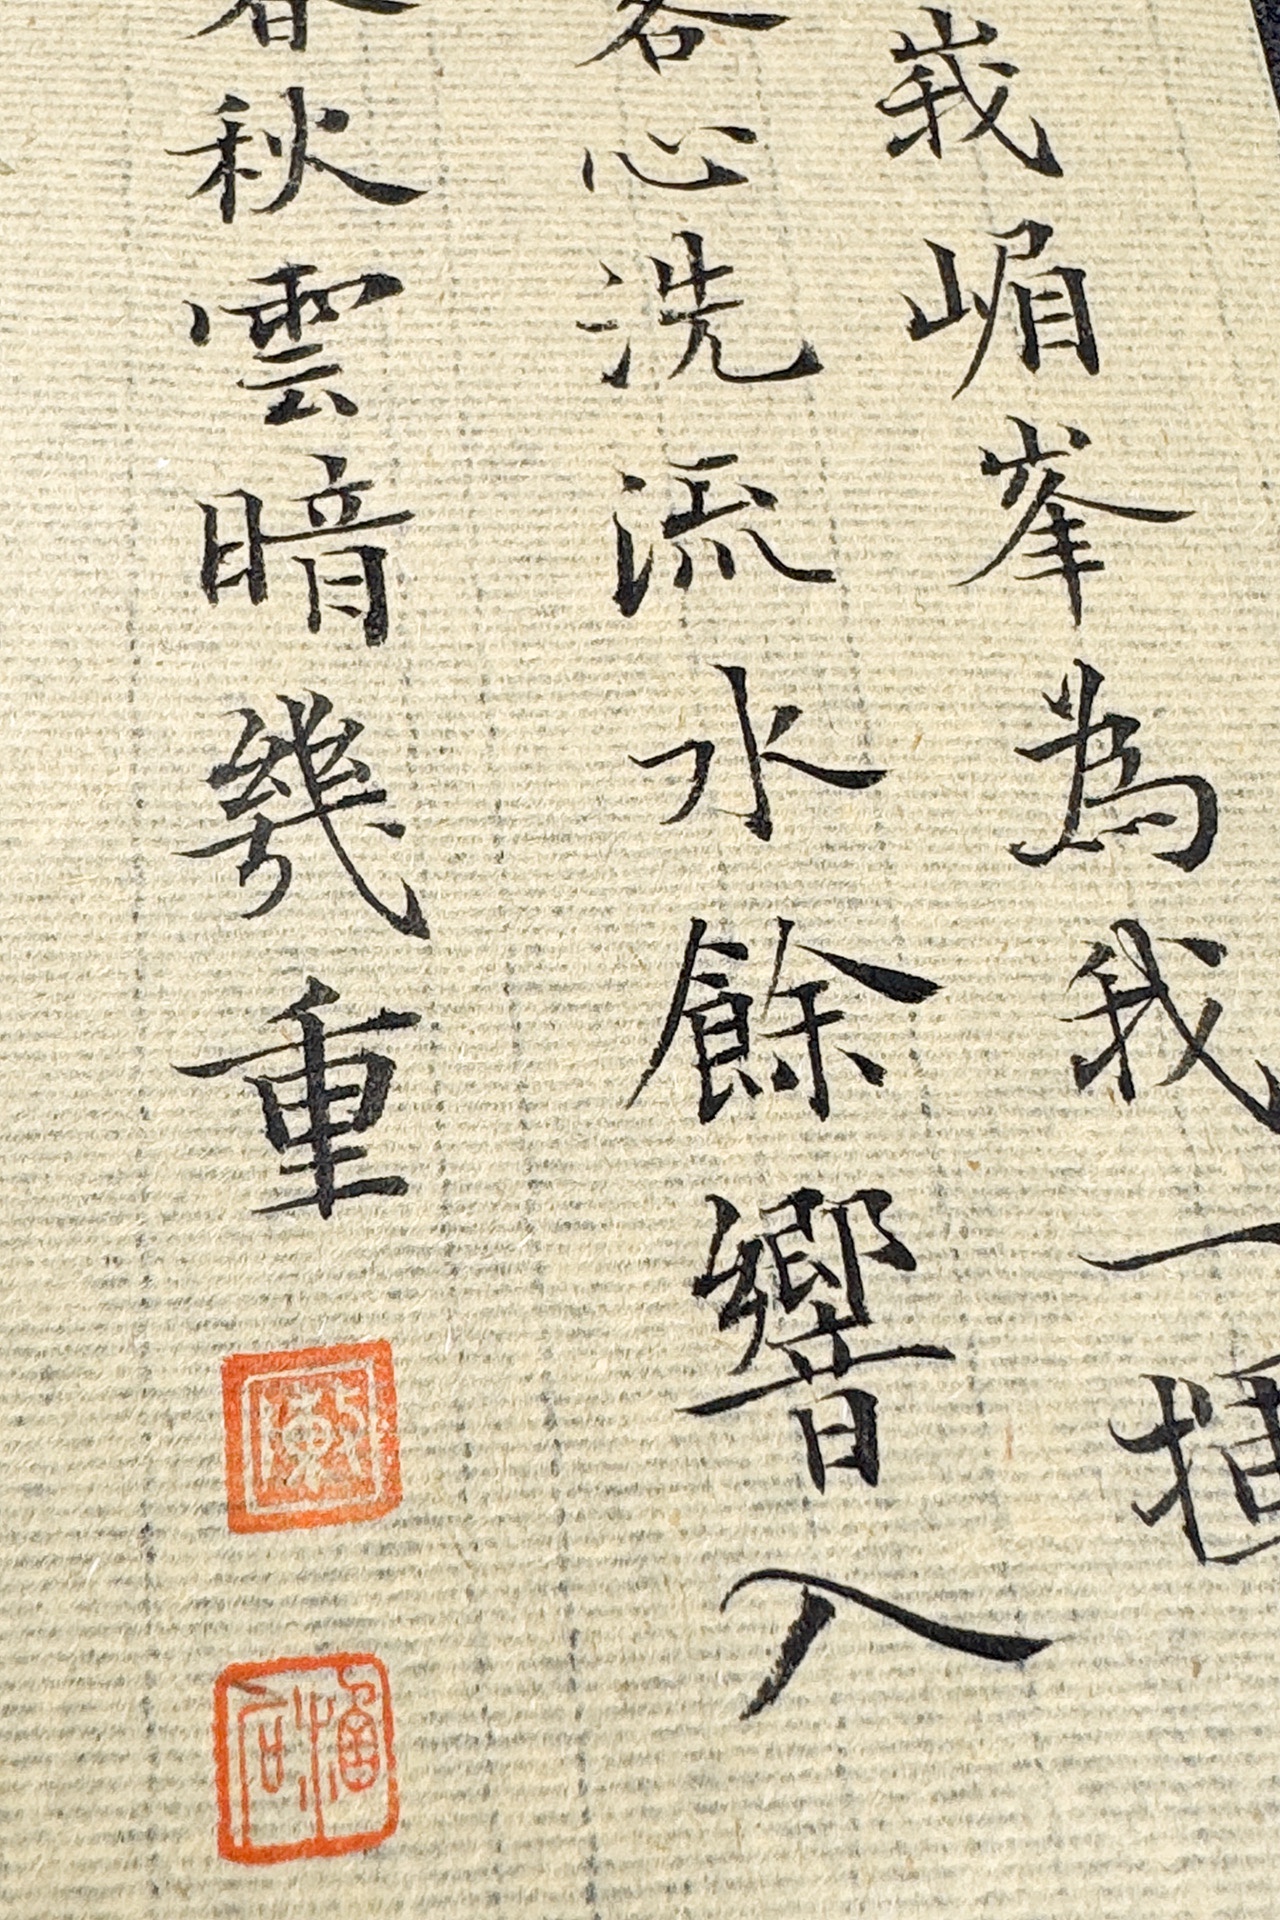 峩嵋峯為我一揮
客心洗流水餘響入
暮秋雲暗幾重